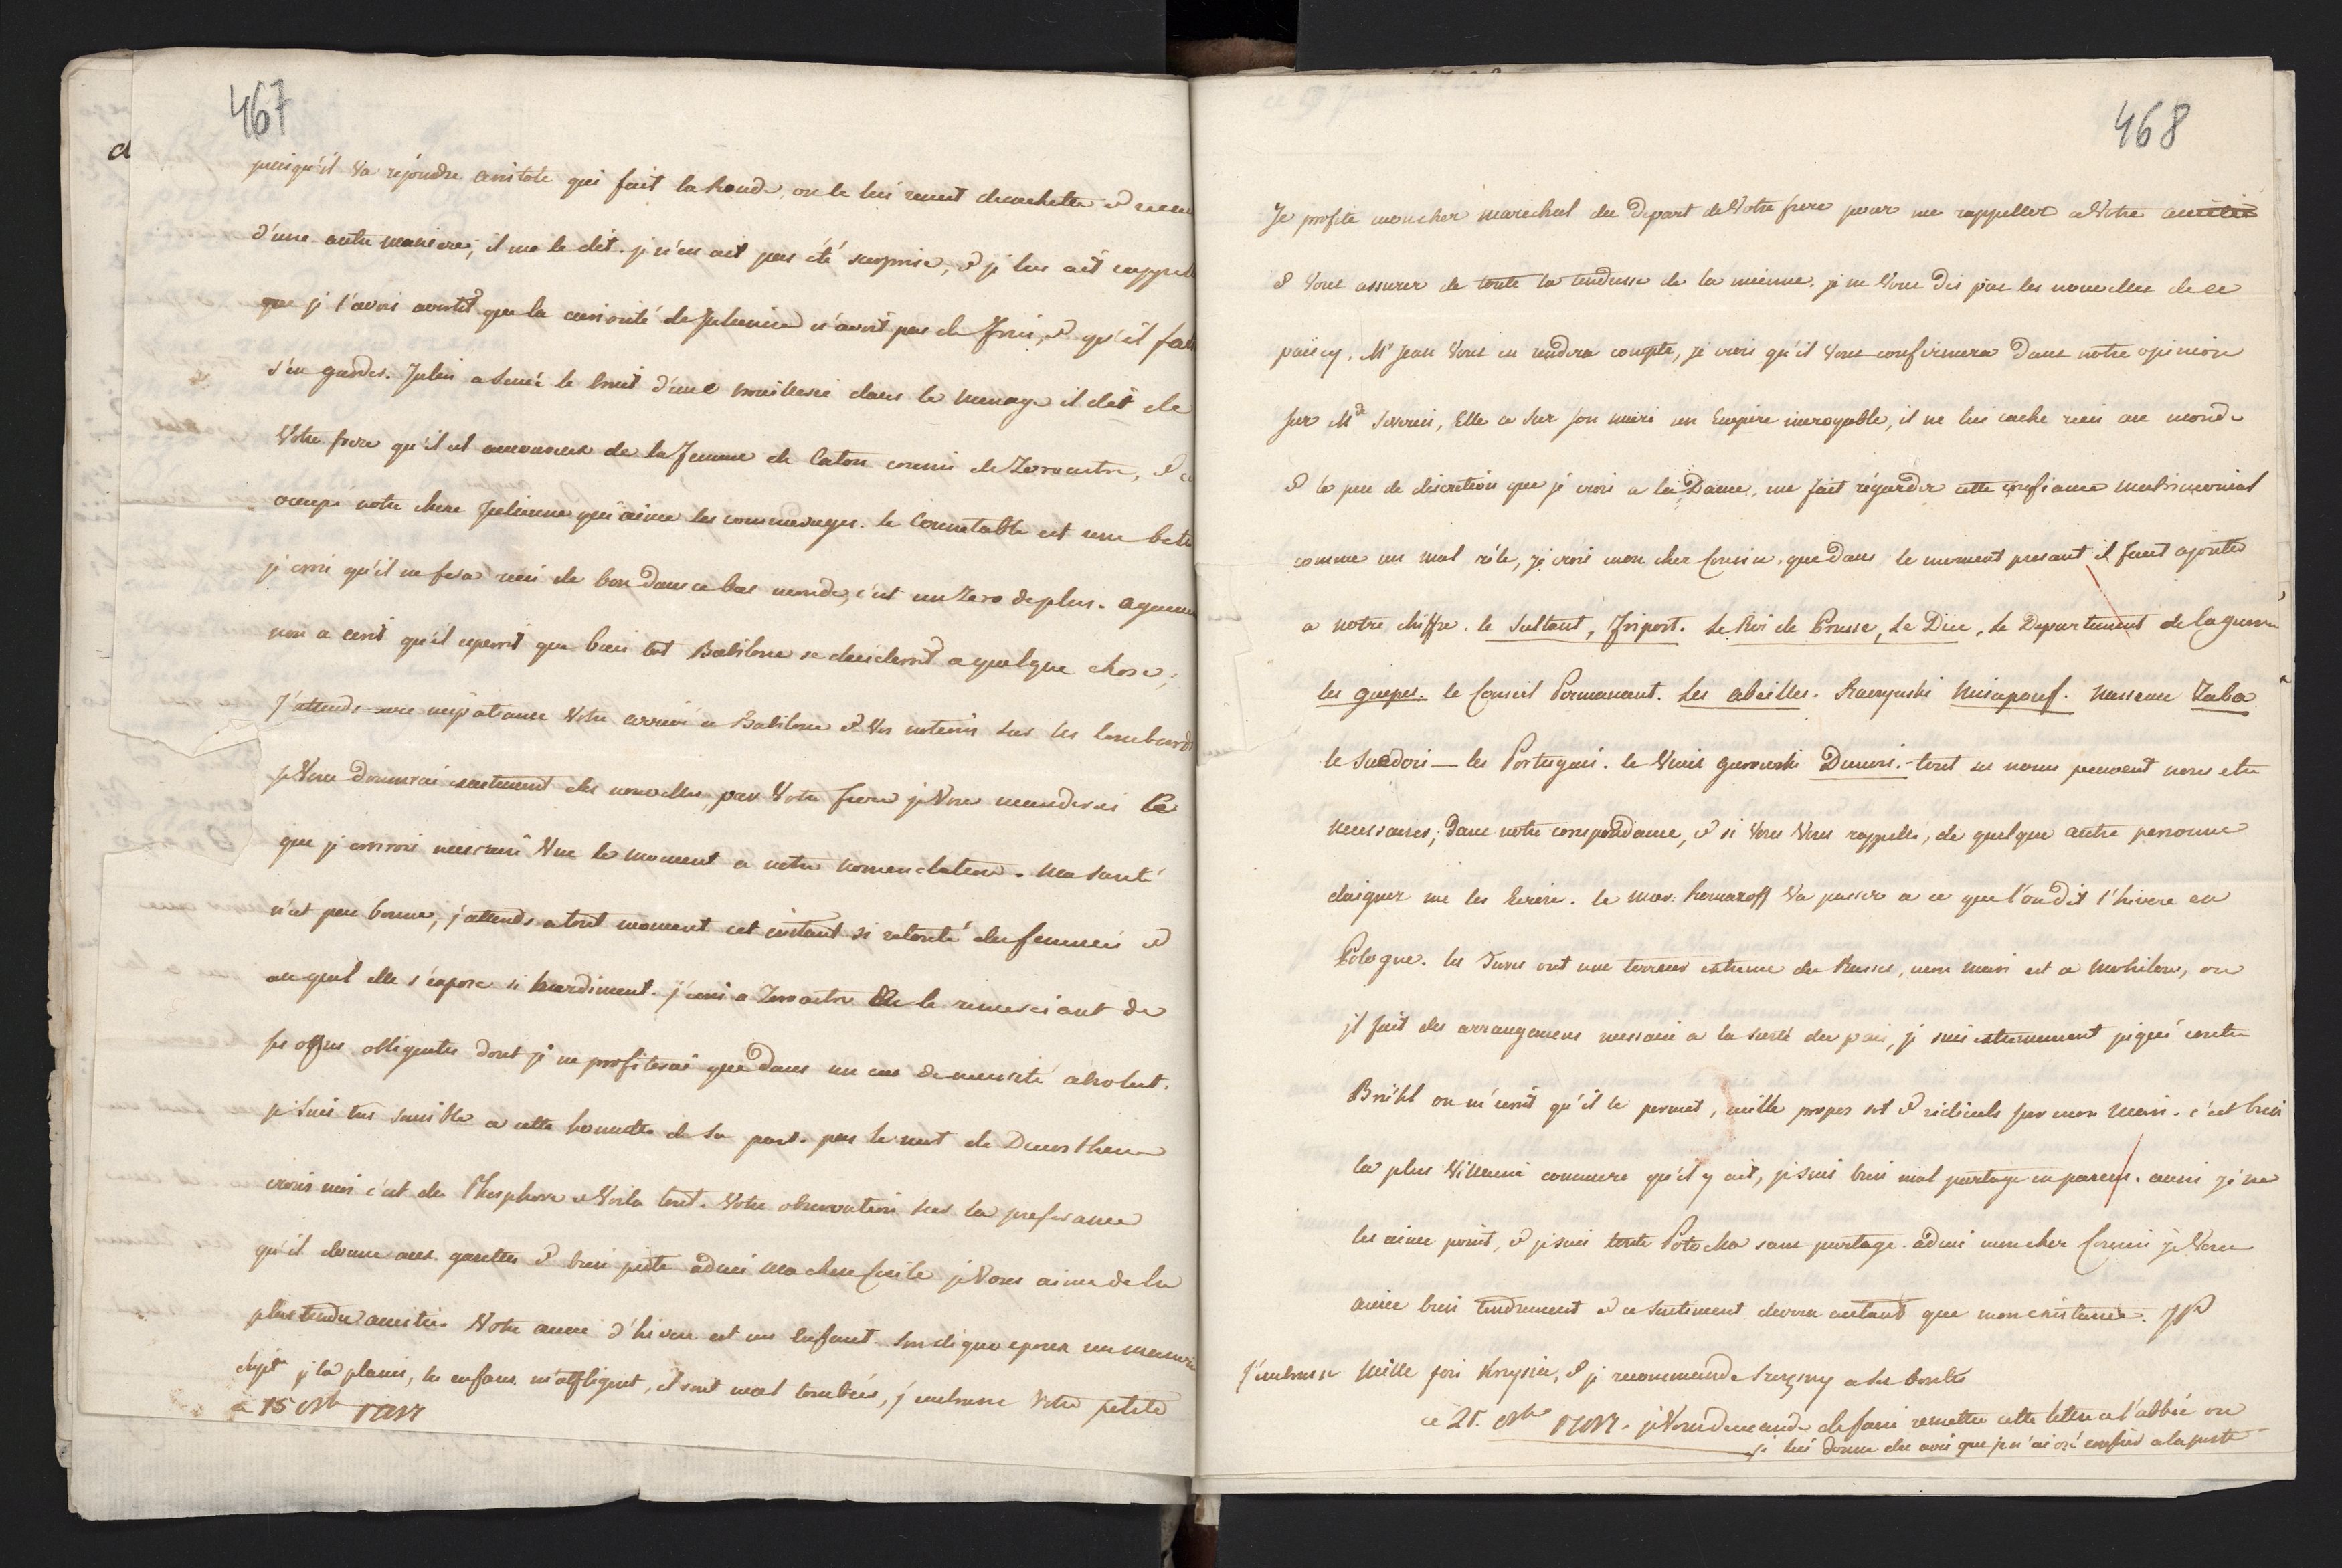 467
puisqu'il va rejoindre aristote qui fait la honde, on le lui remit decachetée et
d'une autre maniere, il me le dit. je n'en ait pas été surprise, et je lui ait rappellé
que je l'avois avertit que la curiosité de Julienne n'avoit pas de frein, et qu'il
s'en gardes. Julien a semé le bruit d'une brouillerie dans le menage il dit de
Votre frere qu'il est amoureux de la femme de Caton cousin de Zoroastre, et
occupe notre chere Julienne qui aime les commerages. le Connetable est une bete
je crois qu'il ne fera rien de bon dans ce bas monde, c'est un Zero de plus.
non a ecrit qu'il esperoit que bien tot Babilone se decideroit a quelque chose,
J'attends avec impatiance votre arrivée a Babilone et vos notions sur les lombards
je Vous donnerai exactement des nouvelles, par Votre frere je Vous manderai ce
que je croirois necessaire Vue le moment a notre nomenclature. Ma santé
n'est pas bonne, j'attends a tout moment cet instant si redouté des femmes et
auquel elle s'expose si hardiment. j'ecris a Zoroastre en le remerciant de
ses offres obligentes dont je ne profiterai que dans un cas de necessité absolut.
je suis tres sensible a cette honneteté de sa part. pas le mot de Demosthene
crois moi c'est du Phosphore et Voila tout. Votre observation sur la preferance
qu'il donne aux gaules et bien juste adieu ma chere Cecile je Vous aime de la
plus tendre amitié. Votre amie d'hiver est un Enfant. son
je la plains, les enfans m'affligent, ils sont mal tombées, j'embrasse Votre petite
a 15
468
Je profite moncher marechal du depart de Votre frere pour me rappeller a Votre amitié
et Vous assurer de toute la tendresse de la mienne. je ne Vous dis pas les nouvelles de ce
païicy, Mr Jean Vous en rendra compte, je crois qu'il Vous confirmera dans notre opinion
sur Md Severin, Elle a sur son mari un Empire incroyable, il ne lui cache rien au monde
et le peu de discretion que je crois a la Dame, me fait regarder cette confiance matrimonial
comme un mal réele, je crois mon cher Cousin, que dans le moment present il faut ajouter
a notre chiffre. le Sultant, Fripont. Le Roi de Prusse, Le Dice, Le Departement de la guerre
les guepes. le Conseil Permanent. Les abeilles. Kaczynski Misapouf. Nassau Zaba
le Suedois — les Portugais. le Vieux gurowski Dunois. tout ses noms peuvent nous etre
necessaires, dans notre correspondance, et si Vous Vous rappellé, de quelque autre personne
daignez me les Ecrire. le mar: Romanzoff va passer a ce que l'on dit l'hivere en
Pologne. les Turcs ont une terreur extreme des Russes, mon mari est a Mohilow, ou
jl fait des arrangemens nessaire a la sureté du pais, je suis extremement piqué contre
Brühl on m'ecrit qu'il se permet, mille propos sot et ridicule sur mon mari. c'est bien
la plus Villaine commere qu'il y ait, je suis bien mal partagé en parens. aussi je ne
les aime point, et je suis toute Potocka sans partage. adieu mon cher Cousin je Vous
aime bien tendrement et ce sentiment durera autant que mon existence. JP
J'embrasse Mille fois Krysia, et je recommande a ses bontés
ce 25. je Vous demande de faire remettre cette lettre a l'abbée ou
je lui donne des avis que je n'ai osé confier a la poste